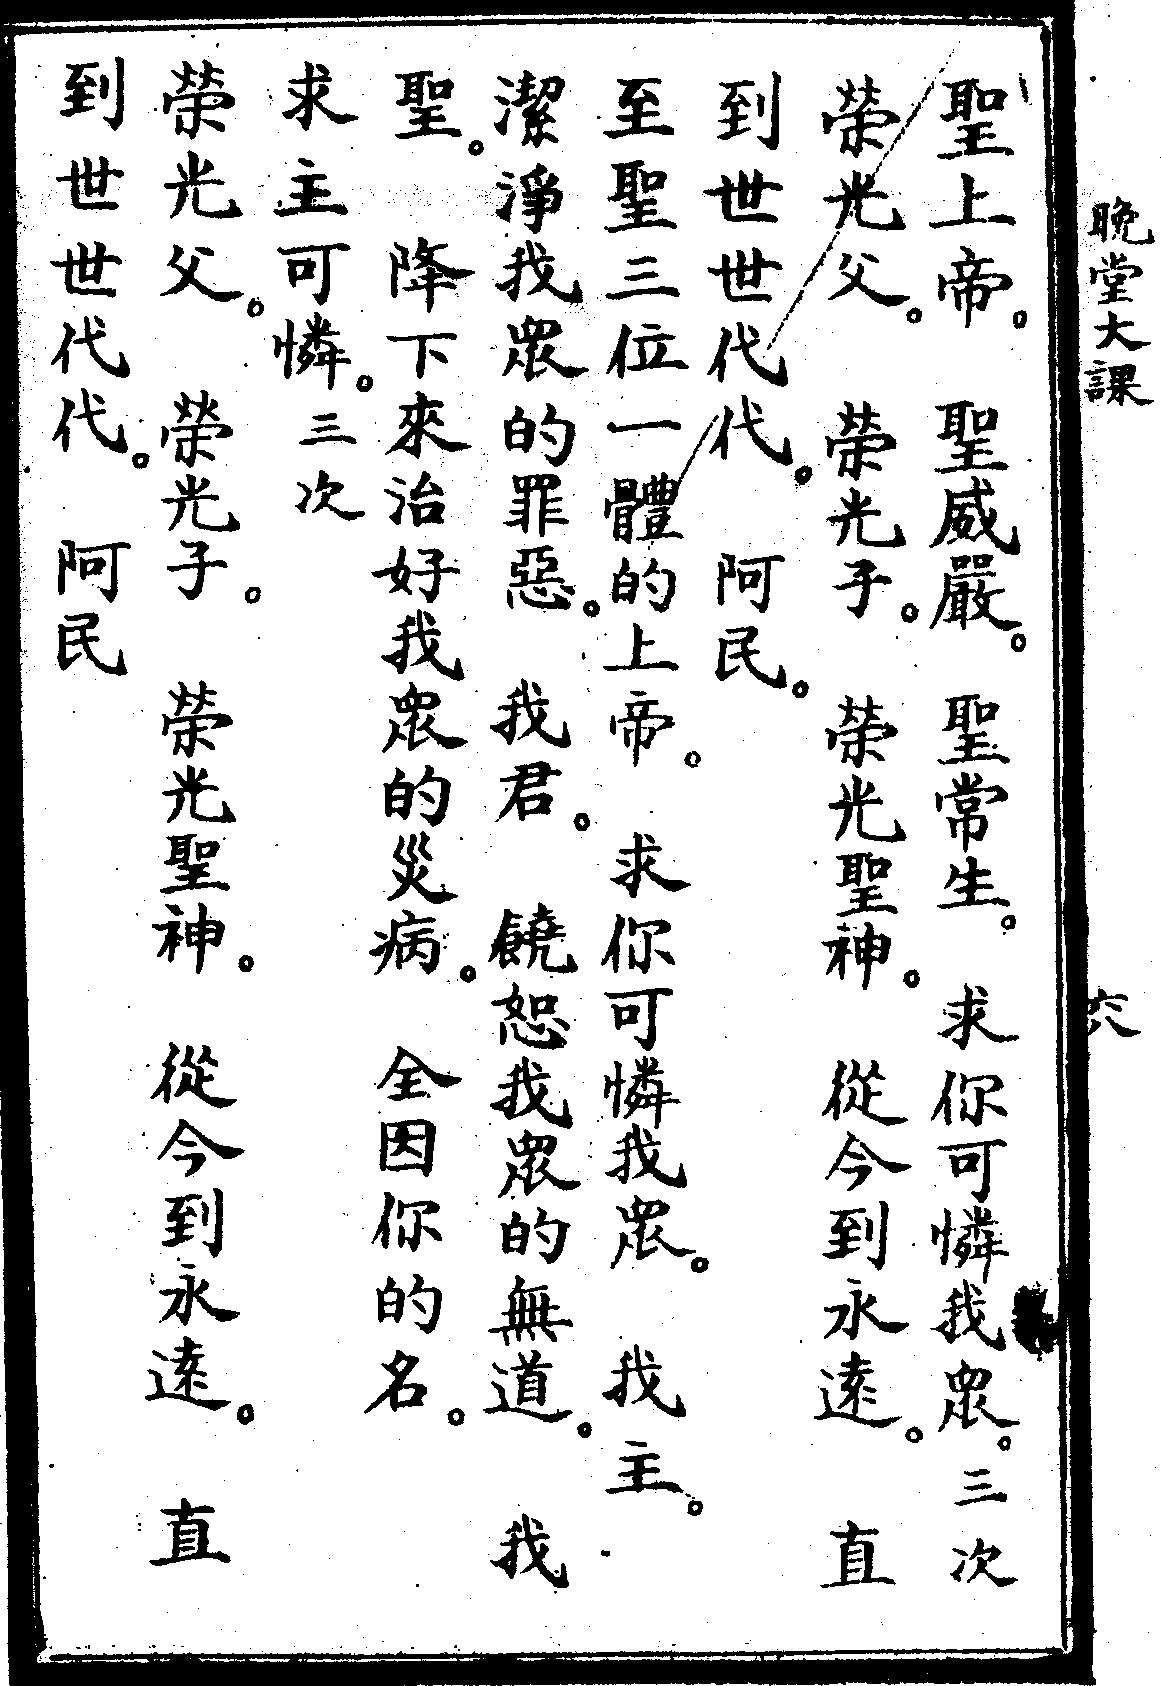 晚堂大課
六
聖上帝。聖威嚴。聖常生。求你可憐我眾。三次
榮光父。榮光子。榮光聖神。從今到永遠。直
到世世代代。阿民。
至聖三位一體的上帝。求你可憐我眾。我主。
潔淨我眾的罪惡。我君。饒恕我眾的無道。我
聖。降下來治好我眾的災病。全因你的名。
求主可憐。三次
榮光父。榮光子。榮光聖神。從今到永遠。直
到世世代代。阿民